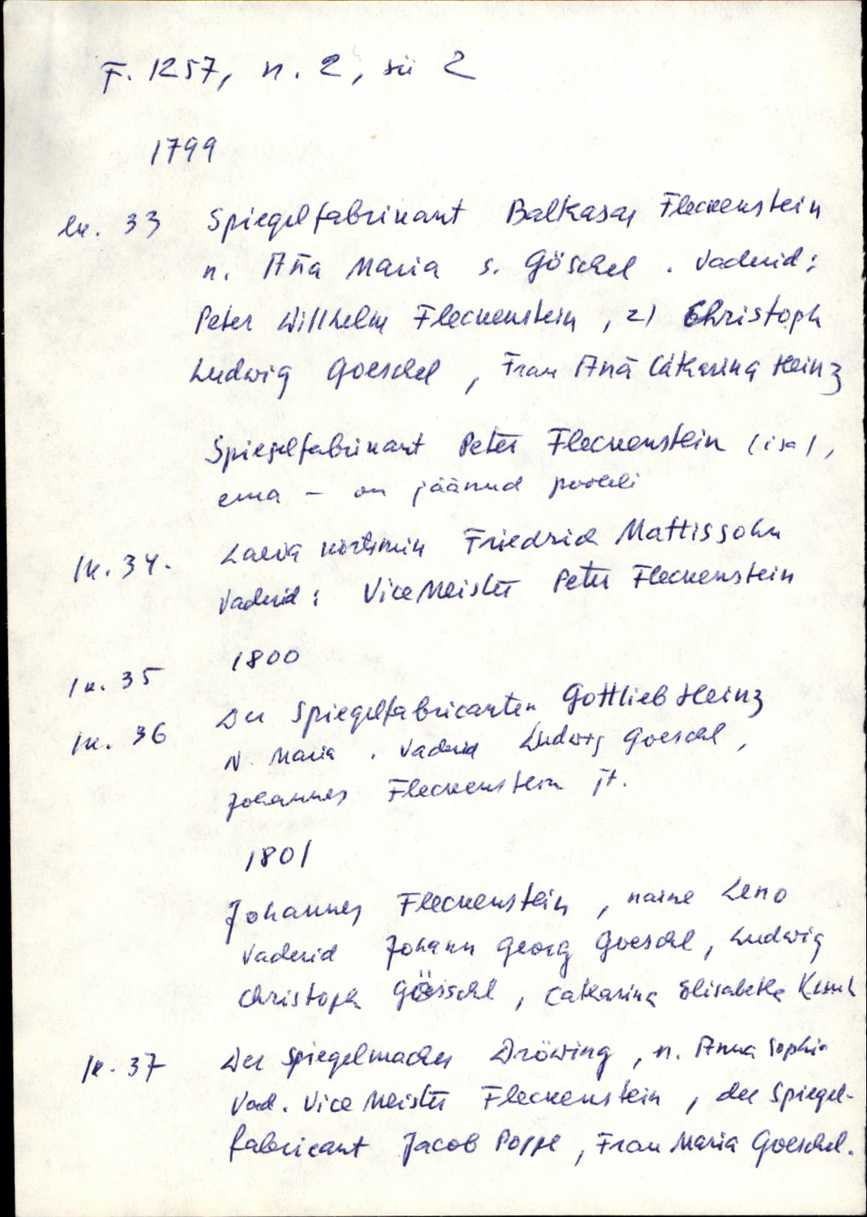 F. 1257, n. 2, sü 2
1799
lk. 33 Spiegelfabrikant Balthasar Fleckenstein
n. Aña Maria s. Göschel. Vaderid:
Peter Willhelm Fleckenstein, 2) Christoph
Ludwig Goeschel, Frau Anā Catharina Heinz
Spiegelfabrikant Peter Fleckenstein (isa),
ema - on jäänud pooleli
lk. 34. Laeva kirtsmin Friedrich Mattissohn
Vaderid: Vice Meister Peter Fleckenstein
lk. 35 1800
lk. 36 Der Spiegelfabricanten Gottlieb Heinz
N. Maria. Vaderid Ludwig Goeschel,
Johannes Fleckenstein jt.
1801
Johannes Fleckenstein, naine Leno
Vaderid Johann Georg Goeschl, Ludwig
Christoph Göesschl, Catharina Elisabetha
lk. 37 Der Spiegelmacher Dröwing, n. Anna Sophia
Vad. Vice Meister Fleckenstein, der Spiegel-
fabricant Jacob Poppe, Frau Maria Goeschel.